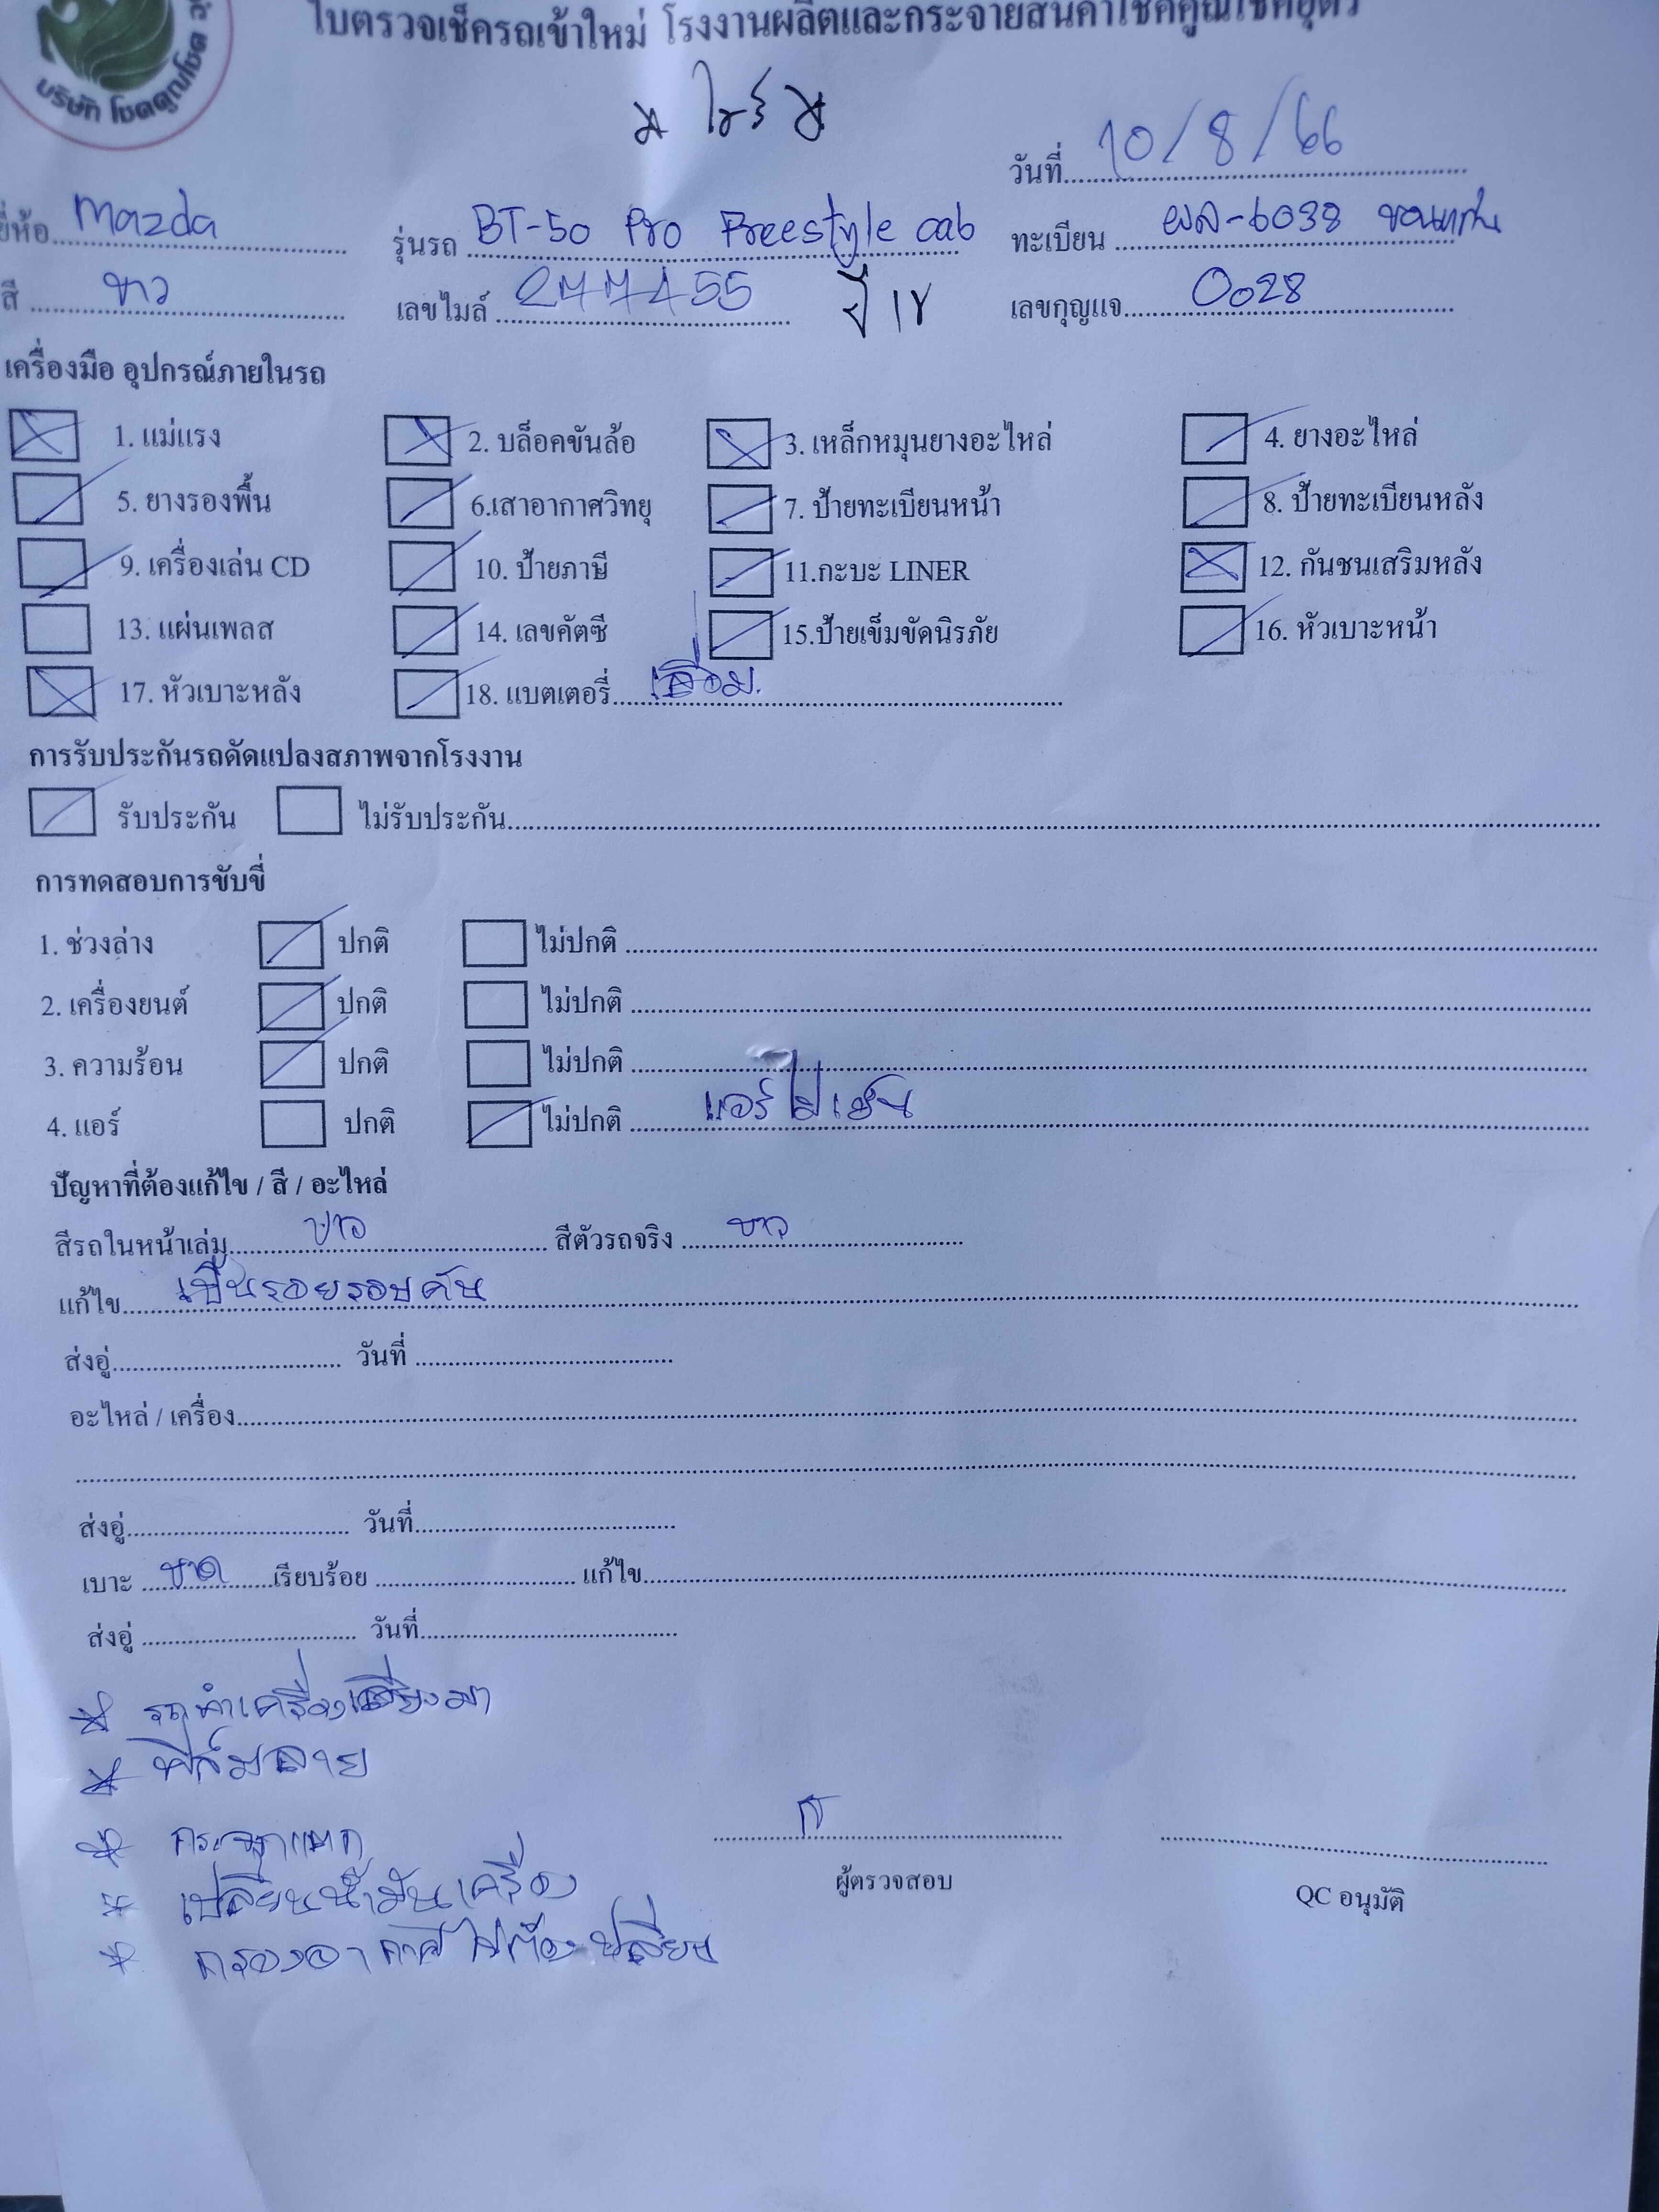 ใบตรวจเช็ครถเข้าใหม่ โรงงานผลิตและกระจายสินค้าโชคคูณโชคอุดร
บริษัท โชคคูณโชค
วันที่ 10/8/66
ยี่ห้อ Mazda รุ่นรถ BT-50 Pro Freestyle cab ทะเบียน ผล-6038 ขอนแก่น
สี ขาว เลขไมล์ 277455 ปี 14 เลขกุญแจ 0028
เครื่องมือ อุปกรณ์ภายในรถ
1. แม่แรง 2. บล็อคขันล้อ 3. เหล็กหมุนยางอะไหล่ 4. ยางอะไหล่
5. ยางรองพื้น 6.เสาอากาศวิทยุ 7. ป้ายทะเบียนหน้า 8. ป้ายทะเบียนหลัง
9. เครื่องเล่น CD 10. ป้ายภาษี 11.กะบะ LINER 12. กันชนเสริมหลัง
13. แผ่นเพลส 14. เลขคัตซี 15.ป้ายเข็มขัดนิรภัย 16. หัวเบาะหน้า
17. หัวเบาะหลัง 18. แบตเตอรี่ เสื่อม.
การรับประกันรถดัดแปลงสภาพจากโรงงาน
รับประกัน ไม่รับประกัน
การทดสอบการขับขี่
1. ช่วงล่าง ปกติ ไม่ปกติ
2. เครื่องยนต์ ปกติ ไม่ปกติ
3. ความร้อน ปกติ ไม่ปกติ
4. แอร์ ปกติ ไม่ปกติ แอร์ไม่เย็น
ปัญหาที่ต้องแก้ไข / สี / อะไหล่
สีรถในหน้าเล่ม ขาว สีตัวรถจริง ขาว
แก้ไข เป็นรอยรอบคัน
ส่งอู่ วันที่
อะไหล่ / เครื่อง
ส่งอู่ วันที่
เบาะ ขาด เรียบร้อย แก้ไข
ส่งอู่ วันที่
รถทำเครื่องเสียงมา
ฟิล์มลาย
กระจกแตก
เปลี่ยนน้ำมันเครื่อง
กรองอากาศไม่ต้องเปลี่ยน
ผู้ตรวจสอบ
QC อนุมัติ